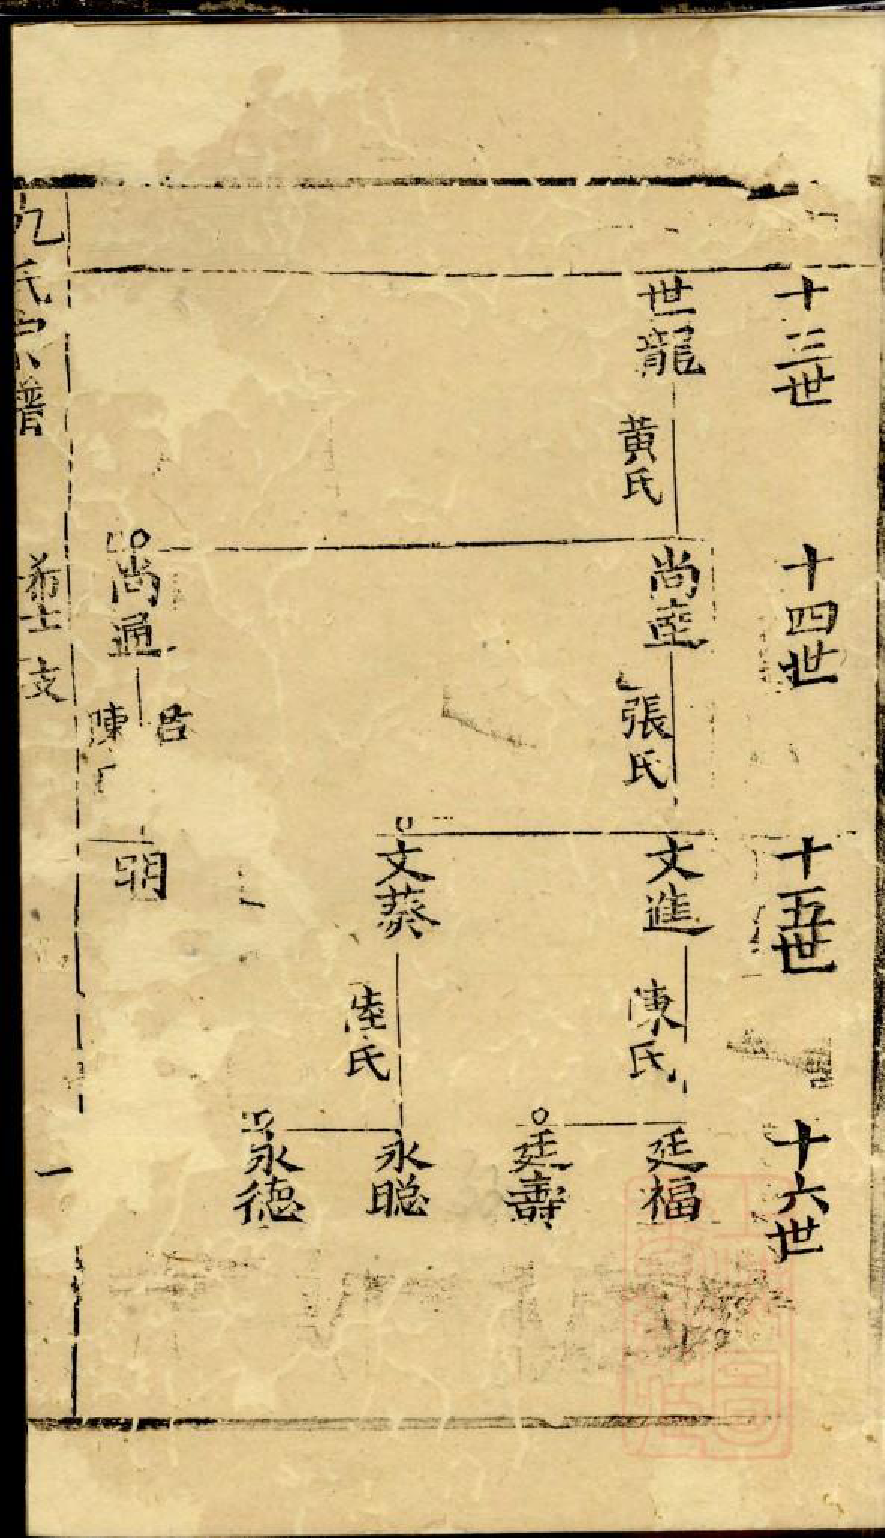 十三世
世龍
黄氏
十四世
尚達
張氏
尚通
呂
陳
十五世
文進
陳氏
文葵
陸氏
明
十六世
廷福
廷壽
永聪
永德
氏宗譜
支
一